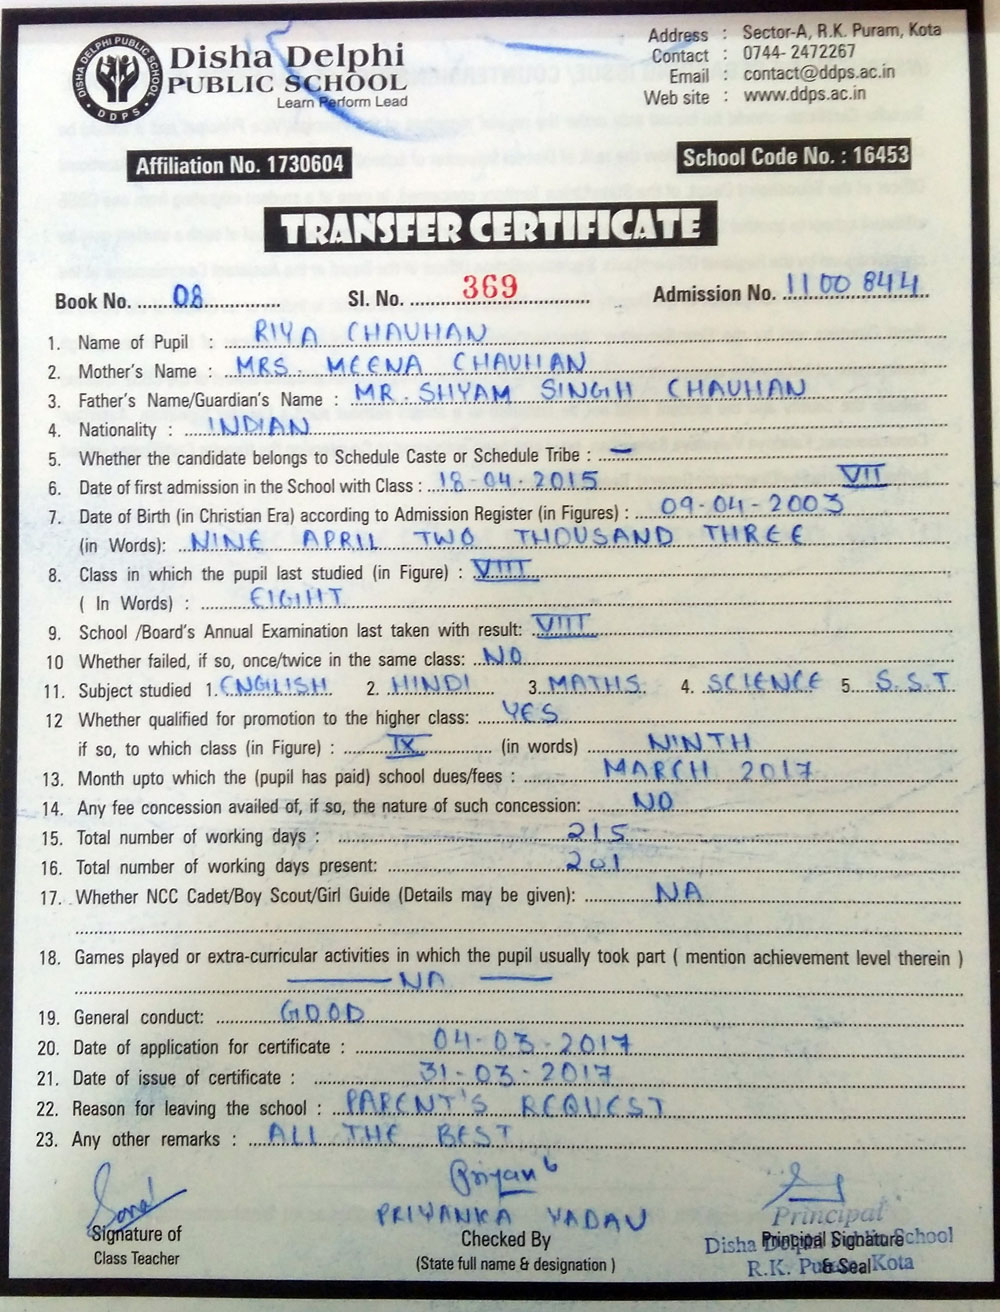 DISHA DELPHI PUBLIC SCHOOL
DDPS
Disha Delphi
PUBLIC SCHOOL
Learn Perform Lead
Address : Sector-A, R.K. Puram, Kota
Contact : 0744- 2472267
Email : contact@ddps.ac.in
Web site : www.ddps.ac.in
Affiliation No. 1730604
School Code No. : 16453
TRANSFER CERTIFICATE
Book No. 08 Sl. No. 369 Admission No. 1100844
1. Name of Pupil : RIYA CHAUHAN
2. Mother's Name : MRS. MEENA CHAUHAN
3. Father's Name/Guardian's Name : MR. SHYAM SINGH CHAUHAN
4. Nationality : INDIAN
5. Whether the candidate belongs to Schedule Caste or Schedule Tribe : –
6. Date of first admission in the School with Class : 18-04-2015 VII
7. Date of Birth (in Christian Era) according to Admission Register (in Figures) : 09-04-2003
(in Words): NINE APRIL TWO THOUSAND THREE
8. Class in which the pupil last studied (in Figure) : VIII
( In Words) : EIGHT
9. School /Board's Annual Examination last taken with result: VIII
10 Whether failed, if so, once/twice in the same class: NO
11. Subject studied 1. ENGLISH 2. HINDI 3. MATHS 4. SCIENCE 5. S.S.T
12 Whether qualified for promotion to the higher class: YES
if so, to which class (in Figure) : IX (in words) NINTH
13. Month upto which the (pupil has paid) school dues/fees : MARCH 2017
14. Any fee concession availed of, if so, the nature of such concession: NO
15. Total number of working days : 215
16. Total number of working days present: 201
17. Whether NCC Cadet/Boy Scout/Girl Guide (Details may be given): NA
18. Games played or extra-curricular activities in which the pupil usually took part ( mention achievement level therein )
— NA —
19. General conduct: GOOD
20. Date of application for certificate : 04-03-2017
21. Date of issue of certificate : 31-03-2017
22. Reason for leaving the school : PARENT'S REQUEST
23. Any other remarks : ALL THE BEST
PRIYANKA YADAV
Signature of
Class Teacher
Checked By
(State full name & designation )
Principal
Principal Signature
& Seal
Disha Delphi Public School
R.K. Puram, Kota